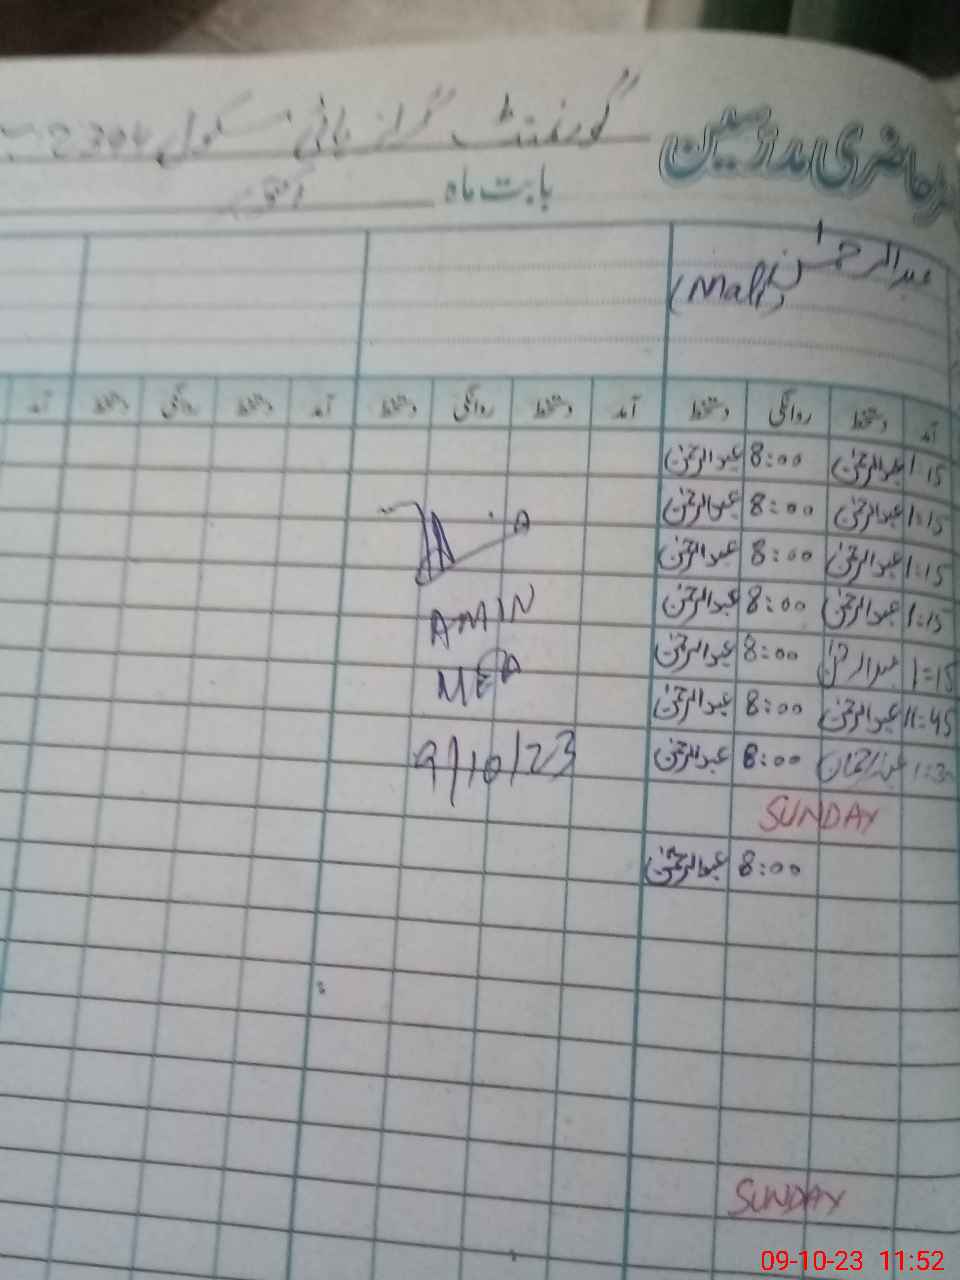 حاضری مدرسین گورنمنٹ گرلز ہائی سکول
بابت ماہ
عبدالرحمٰن
(Mali)
آمد دستخط روانگی دستخط آمد دستخط روانگی دستخط آمد دستخط روانگی دستخط آمد
1:15 عبدالرحمٰن 8:00 عبدالرحمٰن
1:15 عبدالرحمٰن 8:00 عبدالرحمٰن
1:15 عبدالرحمٰن 8:00 عبدالرحمٰن
1:15 عبدالرحمٰن 8:00 عبدالرحمٰن
1:15 عبدالرحمٰن 8:00 عبدالرحمٰن
11:45 عبدالرحمٰن 8:00 عبدالرحمٰن
1:30 عبدالرحمٰن 8:00 عبدالرحمٰن
SUNDAY
8:00 عبدالرحمٰن
AMIN
MEA
9/10/23
SUNDAY
09-10-23 11:52